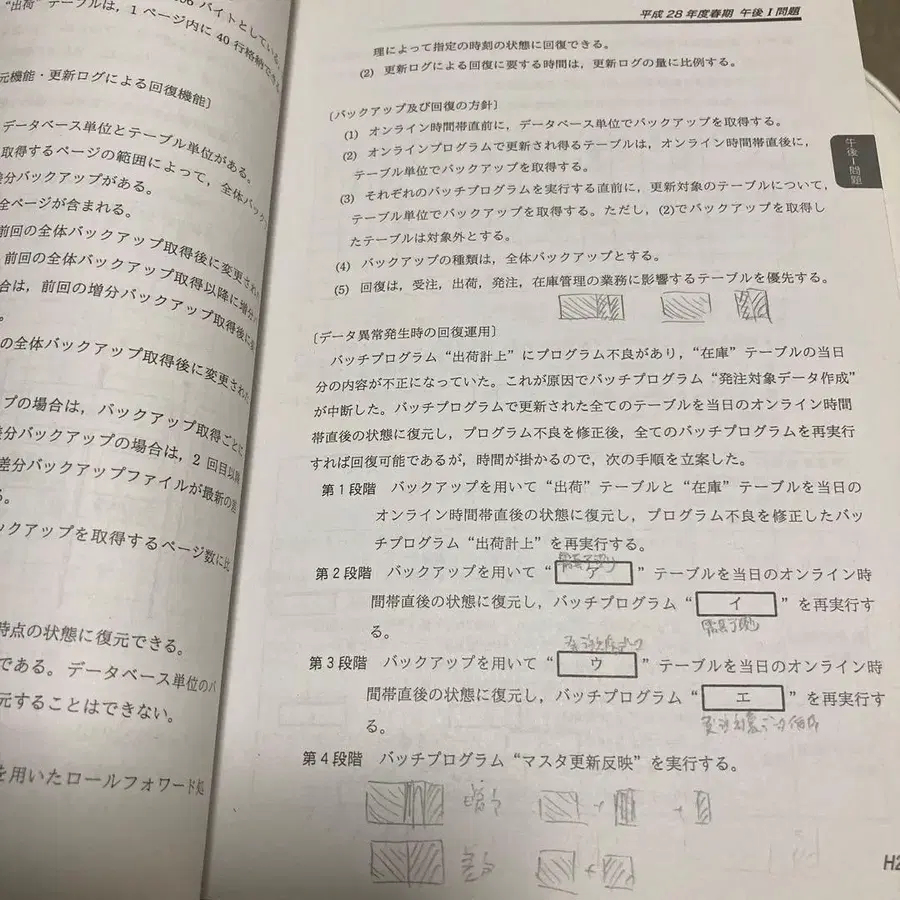 06 バイトとしている。
“出荷” テーブルは，1 ページ内に 40 行格納できる
元機能・更新ログによる回復機能〕
データベース単位とテーブル単位がある。
取得するページの範囲によって，全体バック
差分バックアップがある。
全ページが含まれる。
前回の全体バックアップ取得後に変更された
前回の全体バックアップ取得以降に増分バ
合は，前回の増分バックアップ取得後に変
。
の全体バックアップ取得後に変更された
プの場合は，バックアップ取得ごとに
差分バックアップの場合は，2 回目以降
差分バックアップファイルが最新の差
る。
ックアップを取得するページ数に比
時点の状態に復元できる。
である。データベース単位のバ
元することはできない。
を用いたロールフォワード処
平成 28 年度春期 午後Ⅰ問題
理によって指定の時刻の状態に回復できる。
(2) 更新ログによる回復に要する時間は，更新ログの量に比例する。
〔バックアップ及び回復の方針〕
(1) オンライン時間帯直前に，データベース単位でバックアップを取得する。
(2) オンラインプログラムで更新され得るテーブルは，オンライン時間帯直後に，
テーブル単位でバックアップを取得する。
(3) それぞれのバッチプログラムを実行する直前に，更新対象のテーブルについて，
テーブル単位でバックアップを取得する。ただし，(2)でバックアップを取得し
たテーブルは対象外とする。
(4) バックアップの種類は，全体バックアップとする。
(5) 回復は，受注，出荷，発注，在庫管理の業務に影響するテーブルを優先する。
午後Ⅰ問題
〔データ異常発生時の回復運用〕
バッチプログラム “出荷計上” にプログラム不良があり，“在庫” テーブルの当日
分の内容が不正になっていた。これが原因でバッチプログラム “発注対象データ作成”
が中断した。バッチプログラムで更新された全てのテーブルを当日のオンライン時間
帯直後の状態に復元し，プログラム不良を修正後，全てのバッチプログラムを再実行
すれば回復可能であるが，時間が掛かるので，次の手順を立案した。
第 1 段階 バックアップを用いて “出荷” テーブルと “在庫” テーブルを当日の
オンライン時間帯直後の状態に復元し，プログラム不良を修正したバッ
チプログラム “出荷計上” を再実行する。
第 2 段階 バックアップを用いて “ ア ” テーブルを当日のオンライン時
間帯直後の状態に復元し，バッチプログラム “ イ ” を再実行す
る。
第 3 段階 バックアップを用いて “ ウ ” テーブルを当日のオンライン時
間帯直後の状態に復元し，バッチプログラム “ エ ” を再実行す
る。
第 4 段階 バッチプログラム “マスタ更新反映” を実行する。
増分
差分
H2